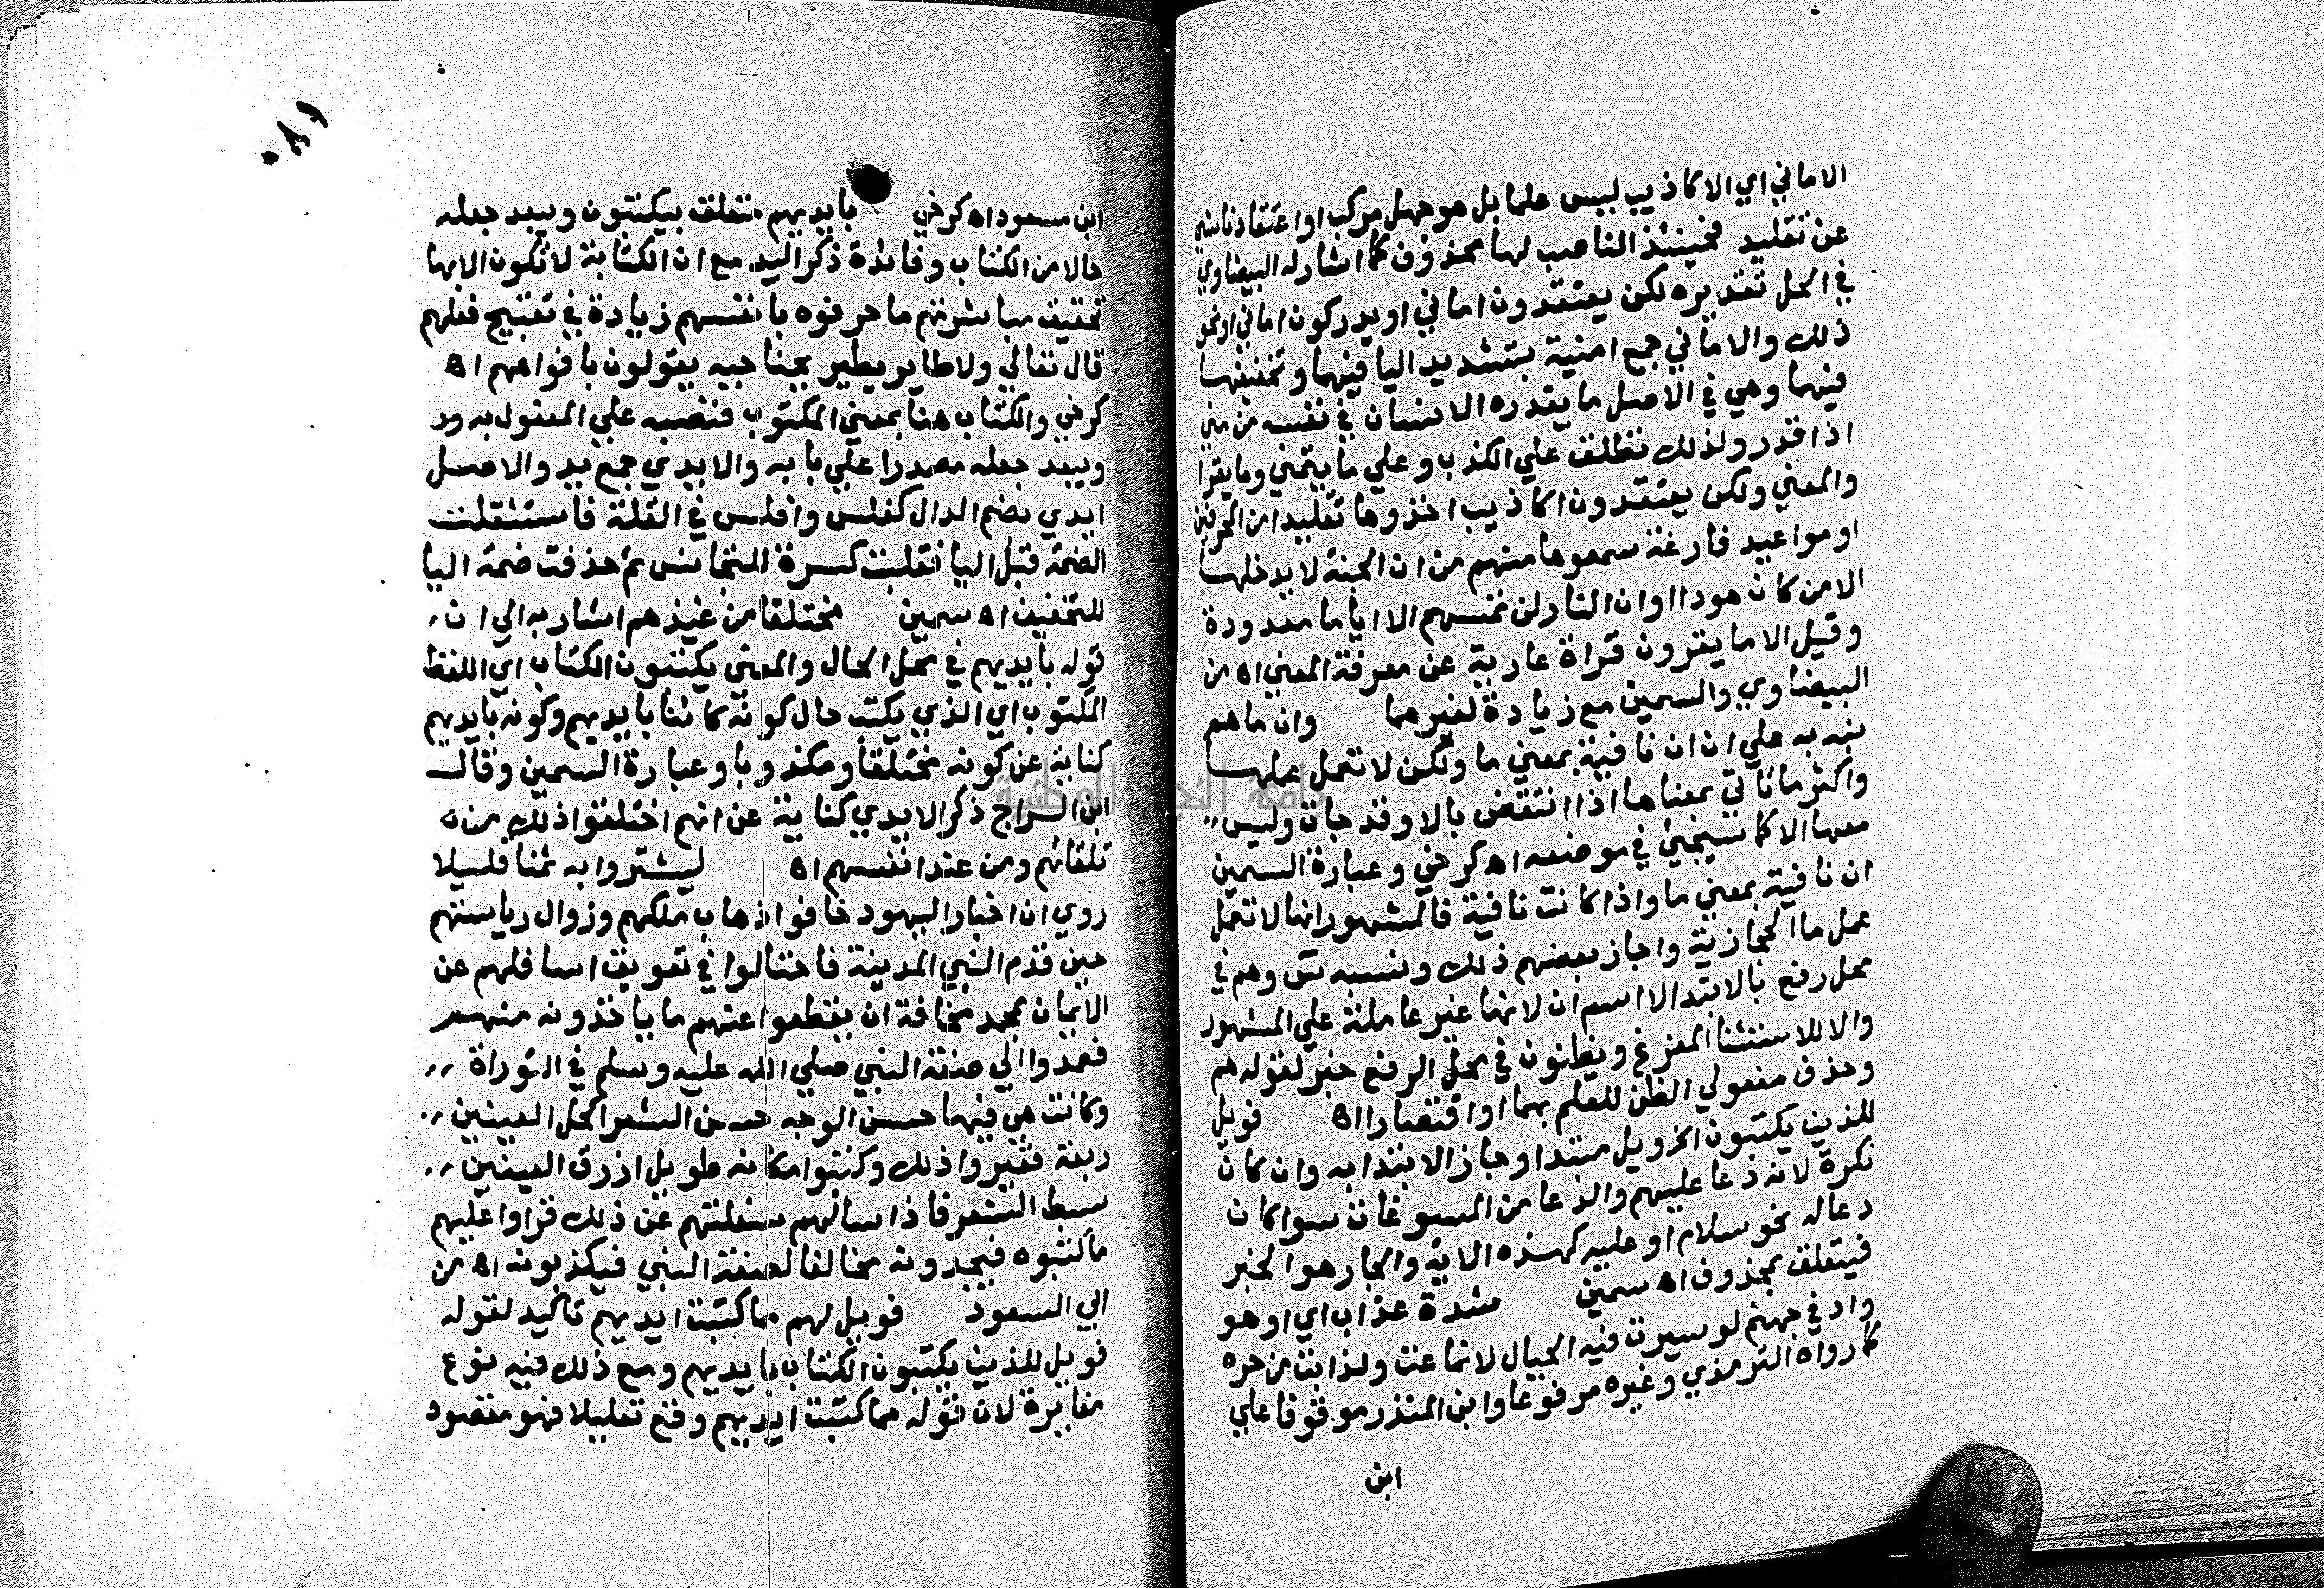 الاماني اي الاكاذيب ليس علما بل هو جهل مركب او اعتقاد ناشي
عن تقليد فحينئذ الناصب لها محذوف كما اشار له البيضاوي
في الحل تقديره لكن يعتقدون اماني او يدركون اماني او نحو
ذلك والاماني جمع امنية بتشديد اليا فيهما وتخفيفها
فيهما وهي في الاصل ما يقدره الانسان في نفسه من مني
اذا قدر ولذلك تطلق علي الكذب وعلي ما يتمني وما يقرا
والمعني ولكن يعتقدون اكاذيب اخذوها تقليدا من المحرفين
او مواعيد فارغة سمعوها منهم من ان الجنة لا يدخلها
الا من كان هودا او ان النار لن تمسهم الا اياما معدودة
وقيل الا ما يقرون قراة عارية عن معرفة المعني اه من
البيضاوي والسمين مع زيادة لغيرهما وان ما هم
نبه به علي ان ان نافية بمعني ما ولكن لا تعمل عملها
واكثر ما تاتي بمعناها اذا انتقض بالا وقد جات وليس
معها الا كما سيجئ في موضعه اه كرخي وعبارة السمين
ان نافية بمعني ما واذا كانت نافية فالمشهور انها لا تعمل
عمل ما الحجازية واجاز بعضهم ذلك ونسبه س وهم في
محل رفع بالابتدا لا اسم ان لانها غير عاملة علي المشهور
والا للاستثنا المفرغ ويظنون في محل الرفع خبر لقوله هم
وحذف مفعولي الظن للعلم بهما او اقتصارا اه فويل
للذين يكتبون الخ ويل مبتدا وجاز الابتدا به وان كان
نكرة لانه دعا عليهم والدعا من المسوغات سوا كان
دعا له نحو سلام او عليه كهذه الاية والجار هو الخبر
فيتعلق بمحذوف اه سمين شدة عذاب اي او هو
واد في جهنم لو سيرت فيه الجبال لانماعت ولذابت من حره
كما رواه الترمذي وغيره مرفوعا وابن المنذر موقوفا علي
ابن
ابن مسعود اه كرخي بايديهم متعلق بيكتبون ويبعد جعله
حالا من الكتاب وفائدة ذكر اليد مع ان الكتابة لا تكون الا بها
تحقيق مباشرتهم ما حرفوه بانفسهم زيادة في تقبيح فعلهم
قال تعالي ولا طاير يطير بجناحيه يقولون بافواههم اه
كرخي والكتاب هنا بمعني المكتوب فنصبه علي المفعول به ود
ويبعد جعله مصدرا علي بابه والايدي جمع يد والاصل
ايدي بضم الدال كفلس وافلس في القلة فاستثقلت
الضمة قبل اليا فقلبت كسرة للتجانس ثم حذفت ضمة اليا
للتخفيف اه سمين مختلقا من عندهم اشار به الي ان
قوله بايديهم في محل الحال والمعني يكتبون الكتاب اي اللفظ
المكتوب اي الذي يكتب حال كونه كائنا بايديهم وكونه بايديهم
كناية عن كونه مختلقا ومكذوبا وعبارة السمين وقال
ابن السراج ذكر الايدي كناية عن انهم اختلقوا ذلك من
تلقائهم ومن عند انفسهم اه ليشتروا به ثمنا قليلا
روي ان احبار اليهود خافوا ذهاب ملكهم وزوال رياستهم
حين قدم النبي المدينة فاحتالوا في تعويق اسافلهم عن
الايمان بمحمد مخافة ان يقطعوا عنهم ما ياخذونه منهم
فعمدوا الي صفة النبي صلي الله عليه وسلم في التوراة
وكانت هي فيها حسن الوجه حسن الشعر اكحل العينين
ربعة فغيروا ذلك وكتبوا مكانه طويل ازرق العينين
سبط الشعر فاذا سالهم سفلتهم عن ذلك قراوا عليهم
ما كتبوه فيجدونه مخالفا لصفة النبي فيكذبونه اه من
ابي السعود فويل لهم مما كتبت ايديهم تاكيد لقوله
فويل للذين يكتبون الكتاب بايديهم ومع ذلك فيه نوع
مغايرة لان قوله مما كتبت ايديهم وقع تعليلا فهو مقصود